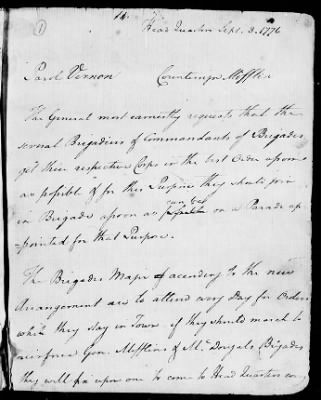 1
14.
Head Quarters Sept. 8. 1776
Parol Vernon Countersign Mifflin
The General most earnestly requests that the
several Brigadiers & Commandants of Brigades
get their respective Corps in the best Order as soon
as possible & for this Purpose they should join
in Brigade as soon as can be possible on a Parade ap
pointed for that Purpose.
The Brigades Major accending to the new
Arrangement are to attend every Day for Orders
while they stay in Town. if they should march to
reinforce Gen. Mifflins & Mc. Dougals Brigades
they will fix upon one to come to Head Quarters